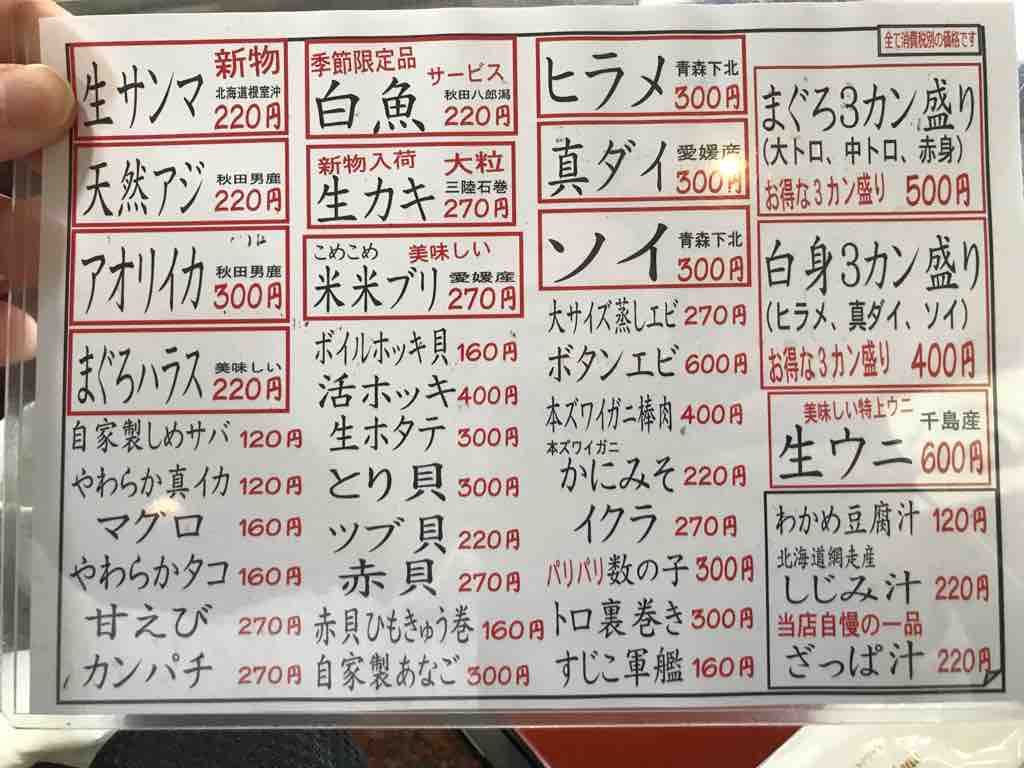 全て消費税別の価格です
新物
生サンマ
北海道根室沖
220円
天然アジ
秋田男鹿
220円
アオリイカ
秋田男鹿
300円
まぐろハラス
美味しい
220円
自家製しめサバ 120円
やわらか真イカ 120円
マグロ 160円
やわらかタコ 160円
甘えび 270円
カンパチ 270円
季節限定品
サービス
白魚
秋田八郎潟
220円
新物入荷 大粒
生カキ
三陸石巻
270円
こめこめ 美味しい
米米ブリ
愛媛産
270円
ボイルホッキ貝 160円
活ホッキ 400円
生ホタテ 300円
とり貝 300円
ツブ貝 220円
赤貝 270円
赤貝ひもきゅう巻 160円
自家製あなご 300円
ヒラメ
青森下北
300円
真ダイ
愛媛産
300円
ソイ
青森下北
300円
大サイズ蒸しエビ 270円
ボタンエビ 600円
本ズワイガニ棒肉 400円
本ズワイガニ
かにみそ 220円
イクラ 270円
パリパリ数の子 300円
トロ裏巻き 300円
すじこ軍艦 160円
まぐろ3カン盛り
(大トロ、中トロ、赤身)
お得な3カン盛り 500円
白身3カン盛り
(ヒラメ、真ダイ、ソイ)
お得な3カン盛り 400円
美味しい特上ウニ
千島産
生ウニ 600円
わかめ豆腐汁 120円
北海道網走産
しじみ汁 220円
当店自慢の一品
ざっぱ汁 220円